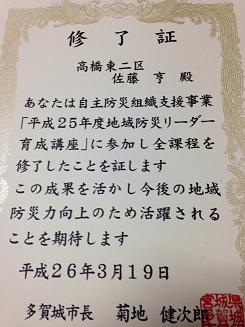 修了証
高橋東二区
佐藤 亨 殿
あなたは自主防災組織支援事業
「平成25年度地域防災リーダー
育成講座」に参加し全課程を
修了したことを証します
この成果を活かし今後の地域
防災力向上のため活躍される
ことを期待します
平成26年3月19日
多賀城市長 菊地 健次郎